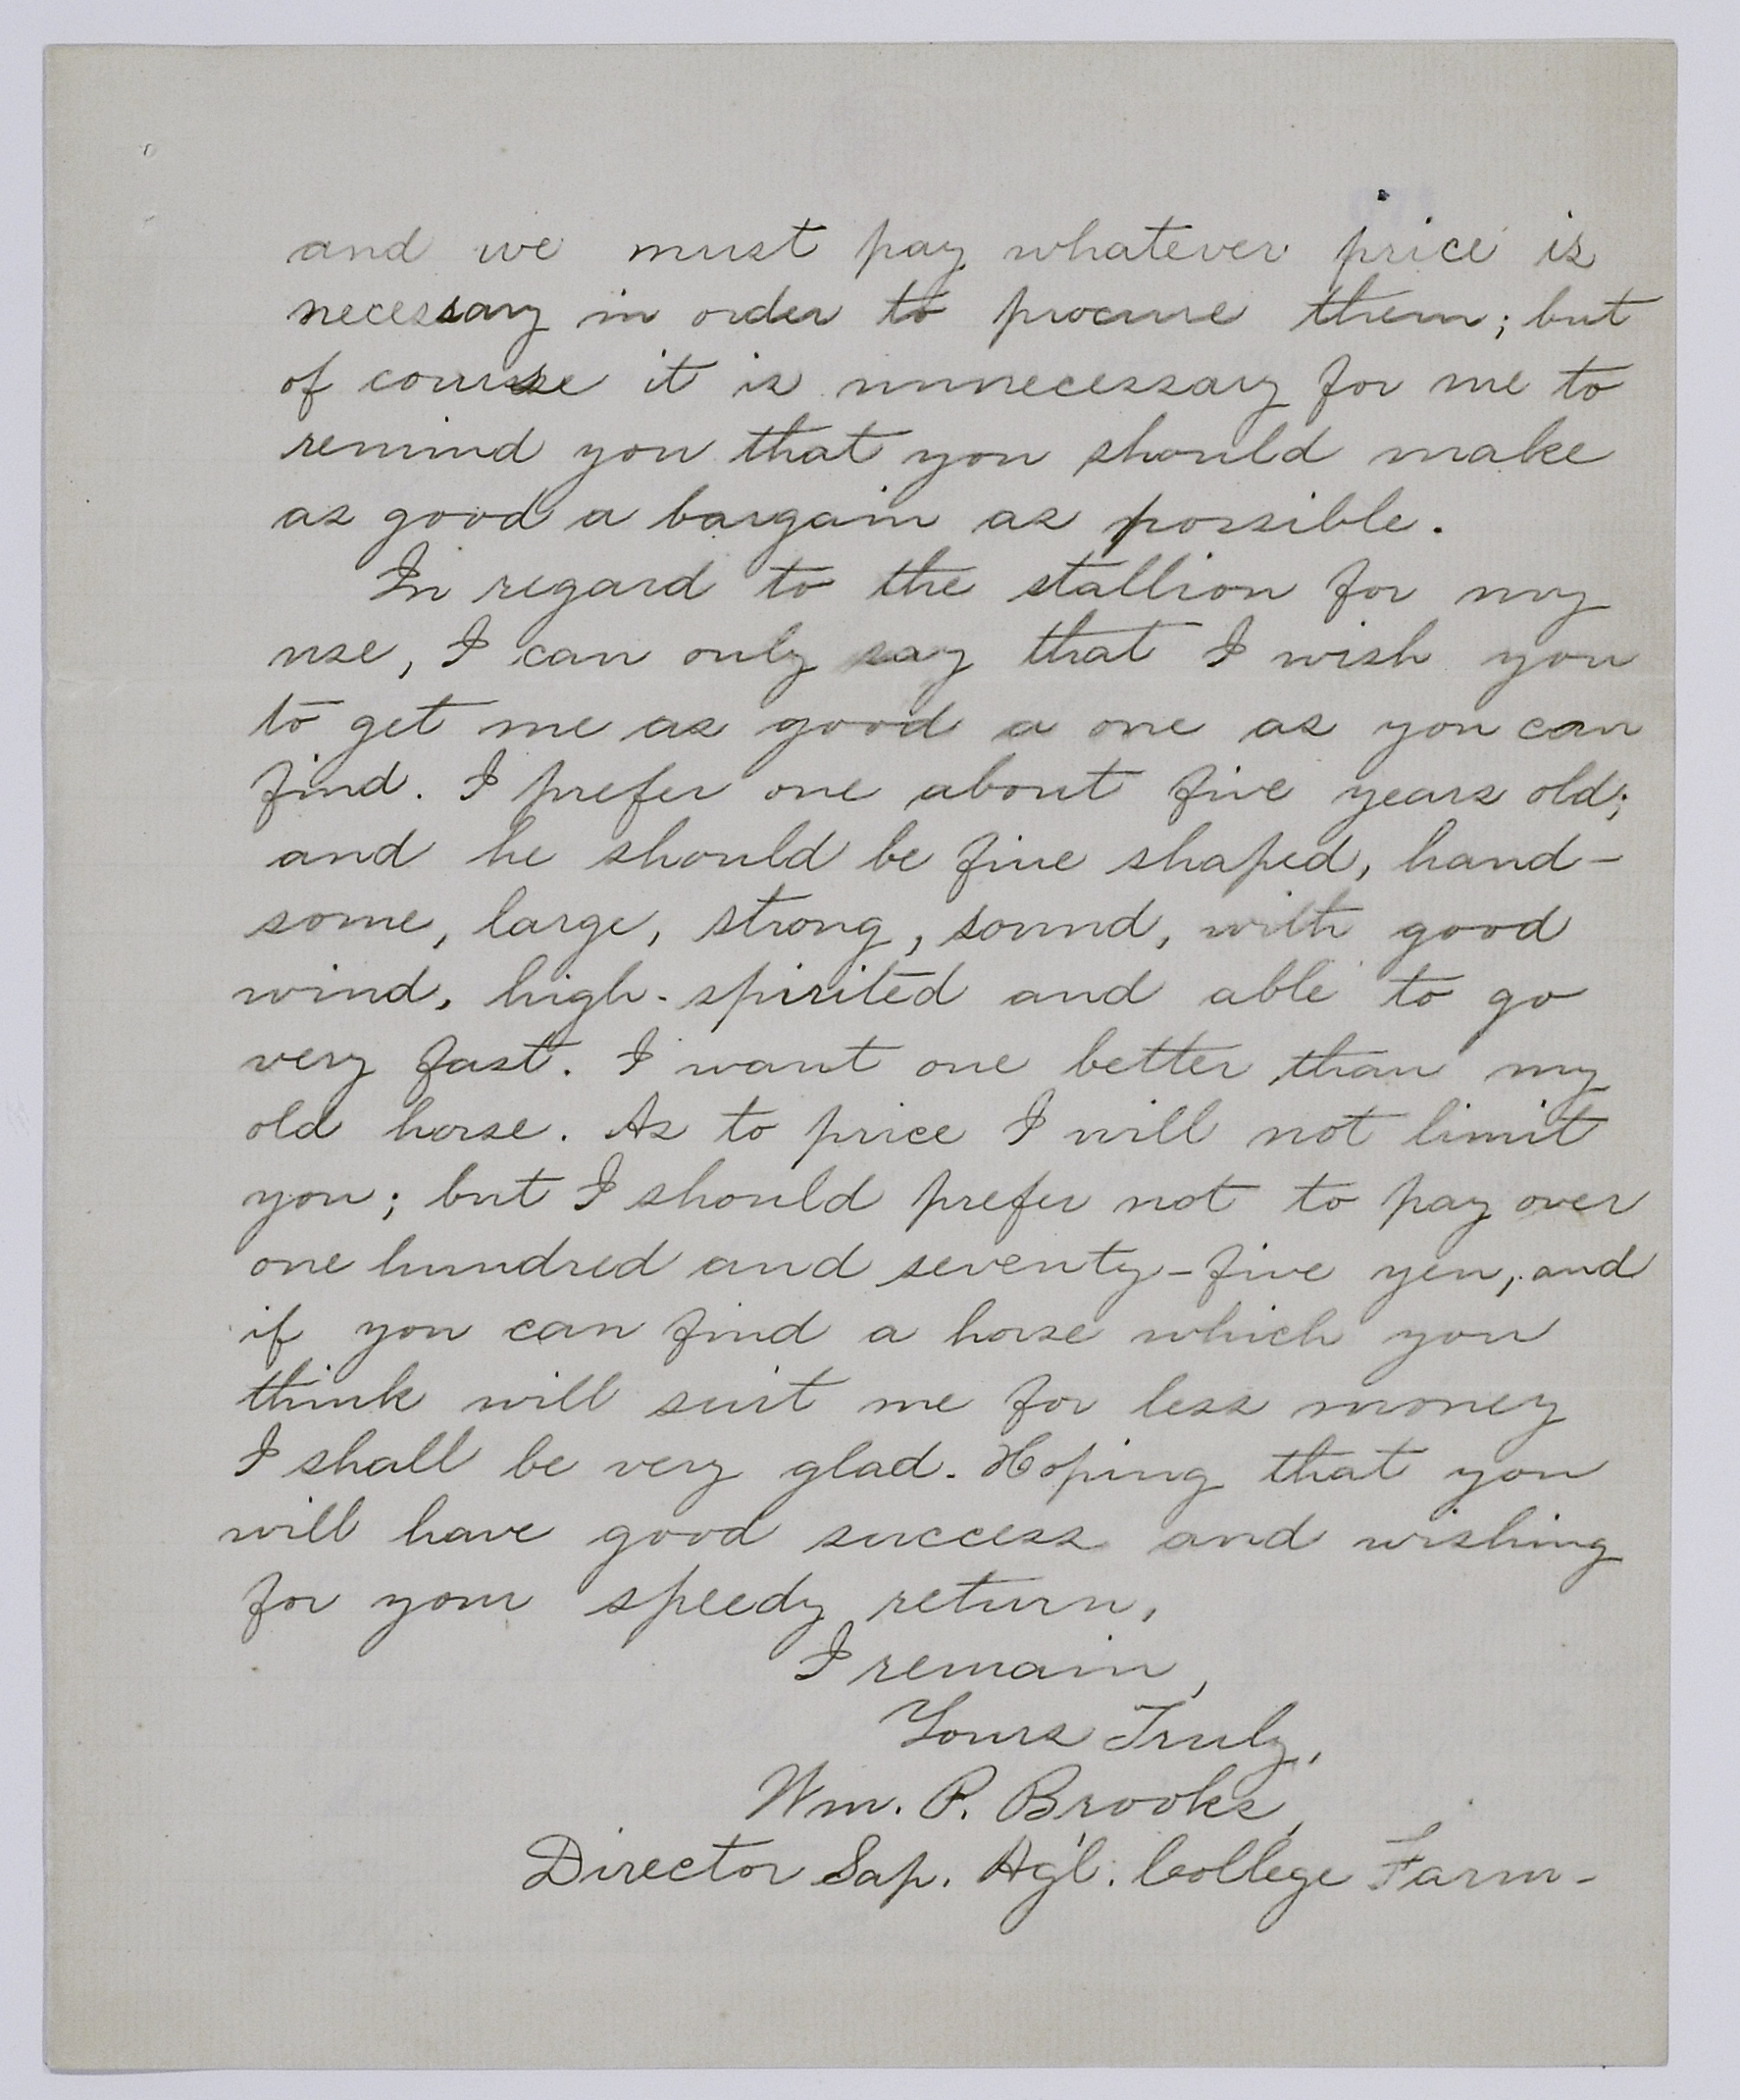 and we must pay whatever price is
necessary in order to procure them; but
of course it is unnecessary for me to
remind you that you should make
as good a bargain as possible.
In regard to the stallion for my
use, I can only say that I wish you
to get me as good a one as you can
find. I prefer one about five years old;
and he should be fine shaped, hand-
some, large, strong, sound, with good
wind, high-spirited and able to go
very fast. I want one better than my
old horse. As to price I will not limit
you; but I should prefer not to pay over
one hundred and seventy-five yen, and
if you can find a horse which you
think will suit me for less money
I shall be very glad. Hoping that you
will have good success and wishing
for your speedy return,
I remain,
Yours Truly,
Wm. P. Brooks,
Director Sap. Ag'l. College Farm-